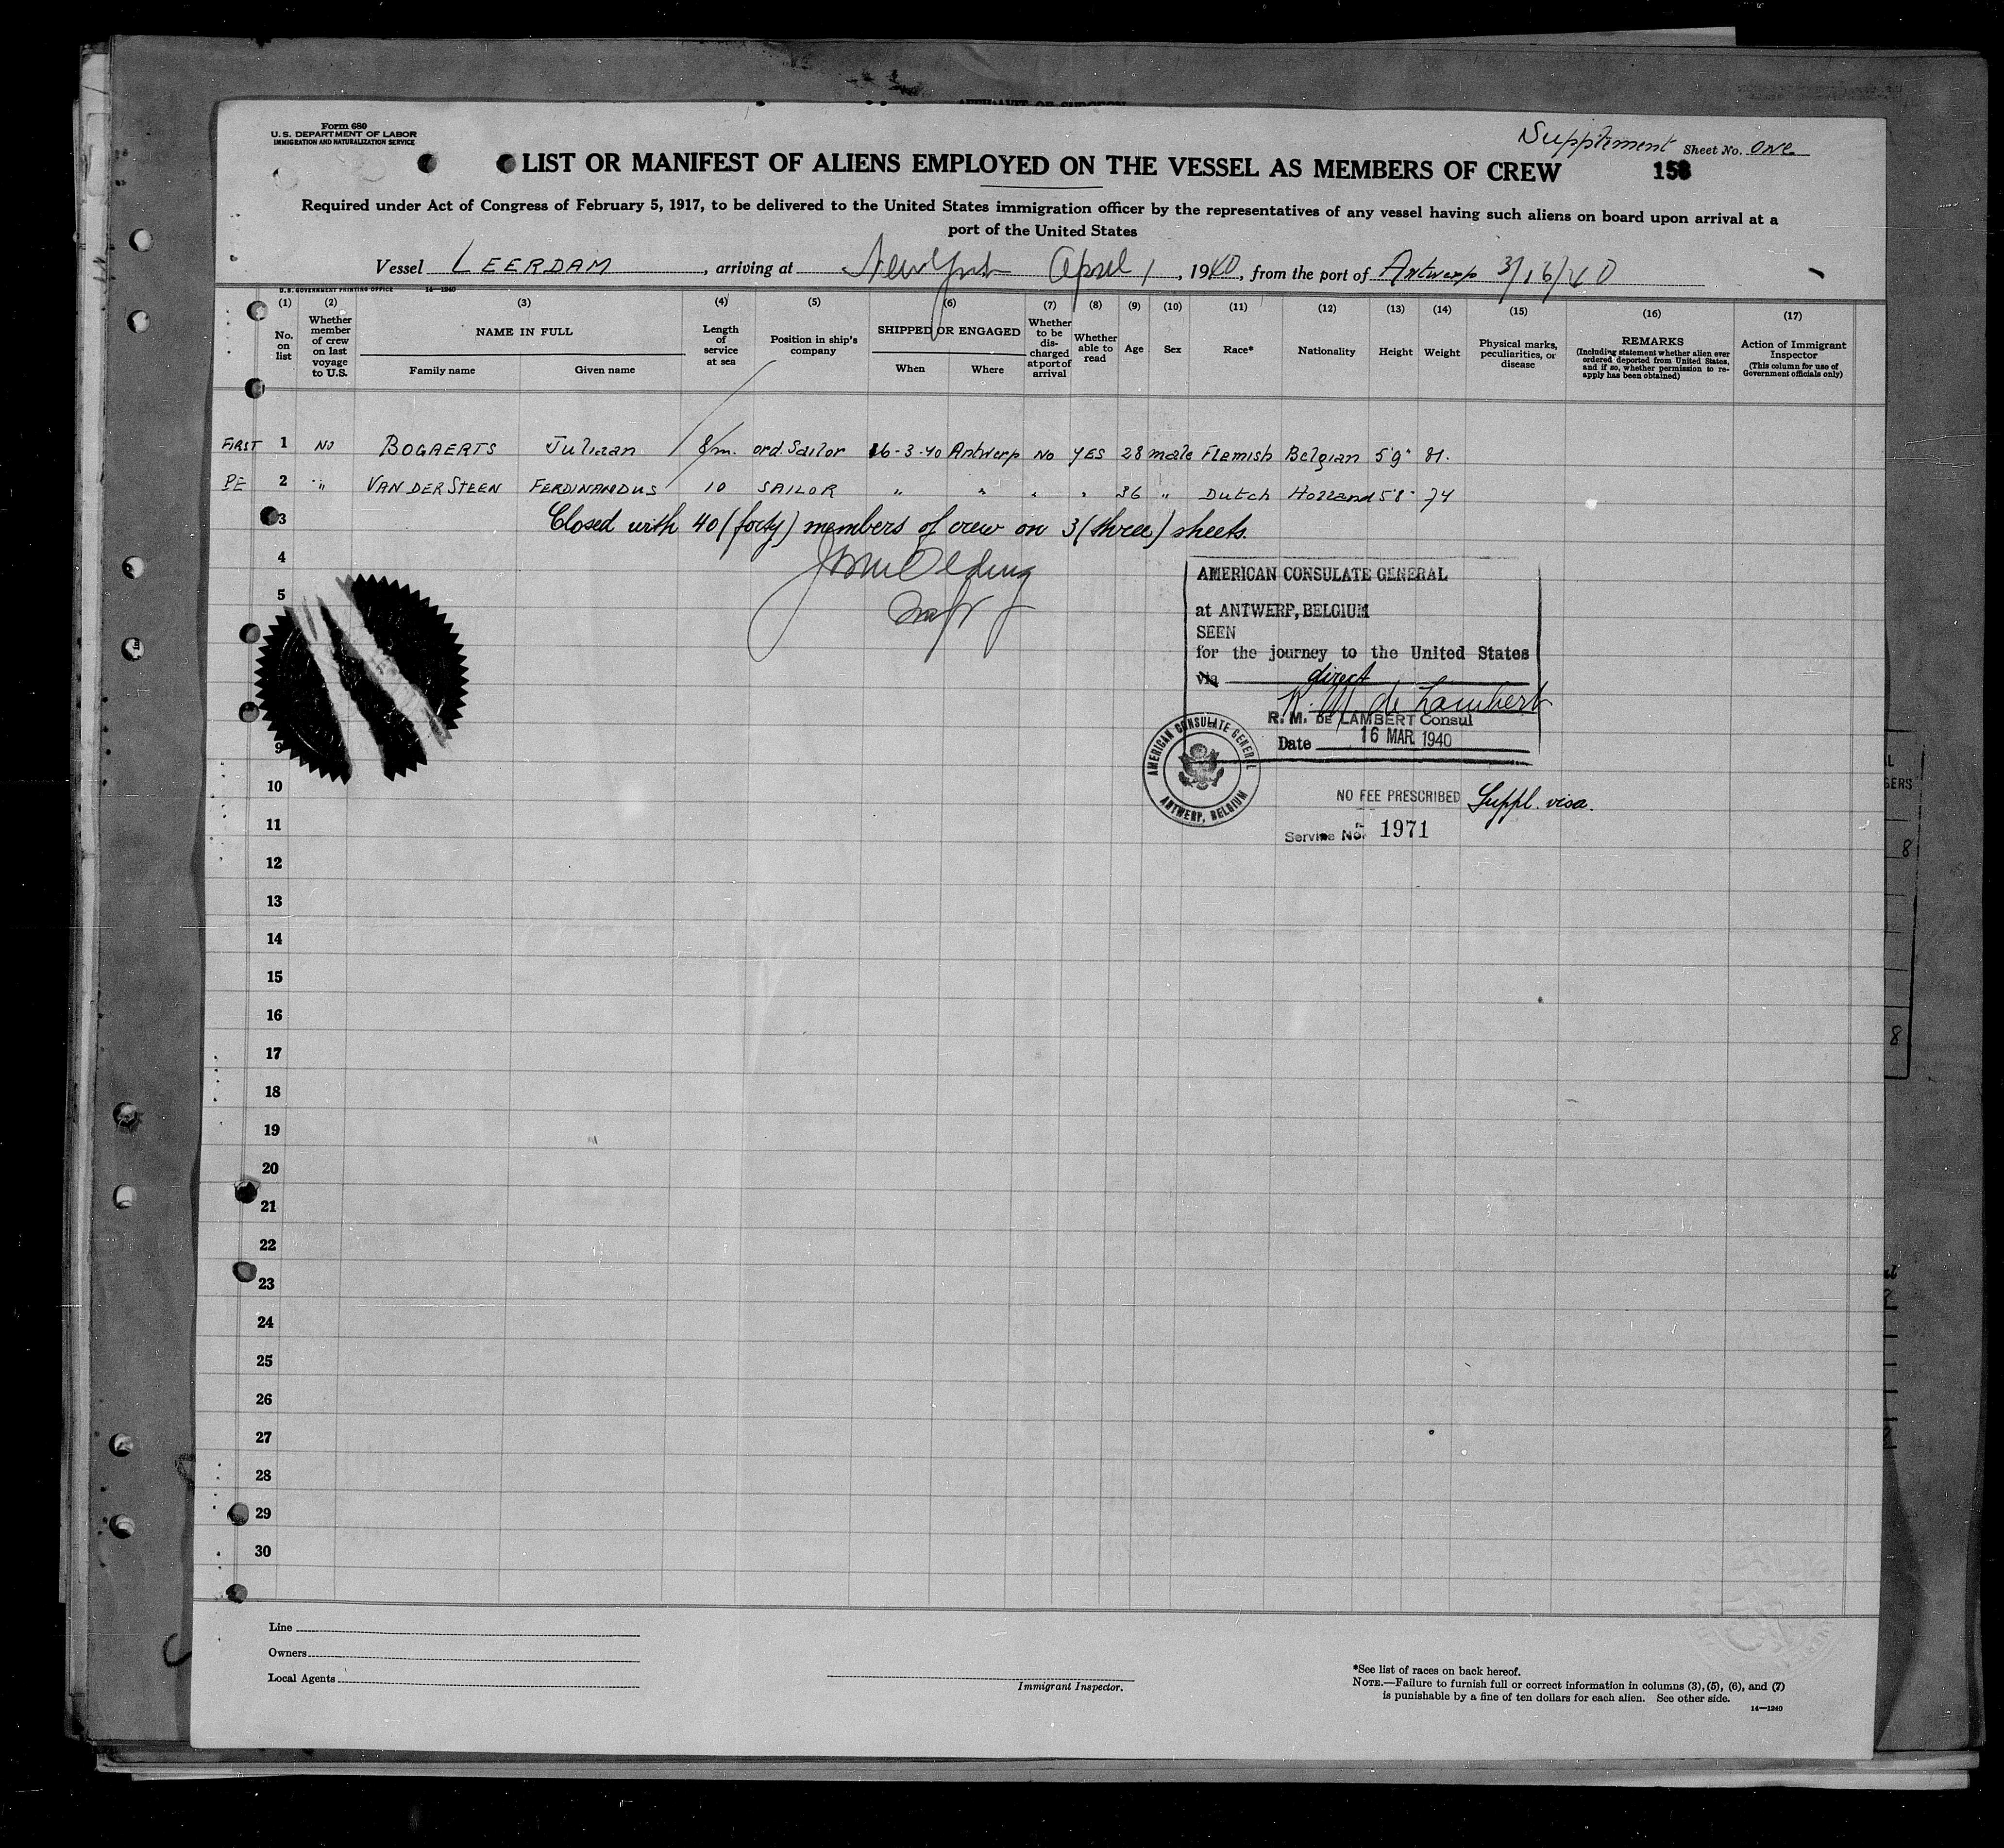 Form 680
U.S. DEPARTMENT OF LABOR
IMMIGRATION AND NATURALIZATION SERVICE
Supplement Sheet No. one
LIST OR MANIFEST OF ALIENS EMPLOYED ON THE VESSEL AS MEMBERS OF CREW
Required under Act of Congress of February 5, 1917, to be delivered to the United States immigration officer by the representatives of any vessel having such aliens on board upon arrival at a
port of the United States
Vessel LEERDAM, arriving at New York April 1, 1940, from the port of Antwerp 3/16/40
U.S. GOVERNMENT PRINTING OFFICE 14—1240
(1) (2) (3) (4) (5) (6) (7) (8) (9) (10) (11) (12) (13) (14) (15) (16) (17)
No. on list
Whether member of crew on last voyage to U.S.
NAME IN FULL
Family name Given name
Length of service at sea
Position in ship's company
SHIPPED OR ENGAGED
When Where
Whether to be discharged at port of arrival
Whether able to read
Age
Sex
Race*
Nationality
Height
Weight
Physical marks, peculiarities, or disease
REMARKS
(Including statement whether alien ever ordered deported from United States, and if so, whether permission to reapply has been obtained)
Action of Immigrant Inspector
(This column for use of Government officials only)
FIRST 1 NO BOGAERTS Juliaan 8/m. ord. Sailor 16-3-40 Antwerp No YES 28 male Flemish Belgian 5'9" 81.
PE 2 " VAN DER STEEN FERDINANDUS 10 SAILOR " " " " 36 " Dutch Holland 5'8" 74
3 Closed with 40 (forty) members of crew on 3 (three) sheets.
4
5
AMERICAN CONSULATE GENERAL
at ANTWERP, BELGIUM
SEEN
for the journey to the United States
via direct
R. M. de Lambert
R. M. DE LAMBERT Consul
Date 16 MAR. 1940
AMERICAN CONSULATE GENERAL
ANTWERP, BELGIUM
NO FEE PRESCRIBED Suppl. visa.
Service No. 1971
9
10
11
12
13
14
15
16
17
18
19
20
21
22
23
24
25
26
27
28
29
30
Line
Owners
Local Agents
Immigrant Inspector.
*See list of races on back hereof.
NOTE.—Failure to furnish full or correct information in columns (3), (5), (6), and (7)
is punishable by a fine of ten dollars for each alien. See other side.
14—1240